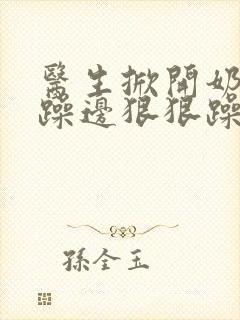 醫生掀開奶
躁邊狠狠躁
孫全玉